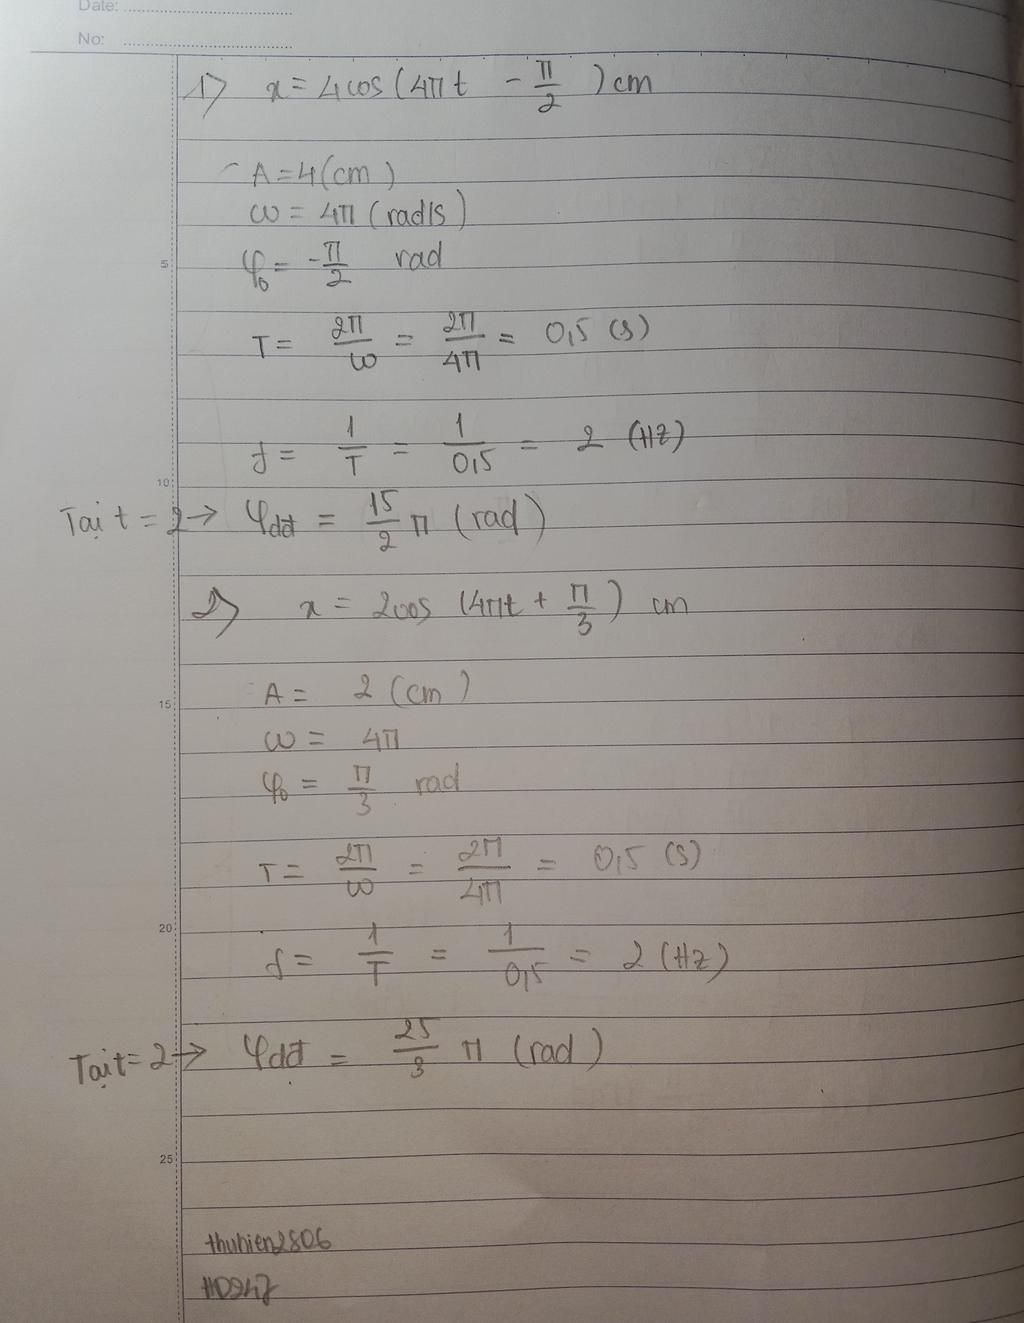 Date:
No:
1) x = 4cos(4πt - π/2) cm
A = 4 (cm)
ω = 4π (rad/s)
5
φ₀ = -π/2 rad
T = 2π/ω = 2π/4π = 0,5 (s)
f = 1/T = 1/0,5 = 2 (Hz)
10
Tại t = 2 → φdđ = 15/2 π (rad)
2) x = 2cos (4πt + π/3) cm
A = 2 (cm)
15
ω = 4π
φ₀ = π/3 rad
T = 2π/ω = 2π/4π = 0,5 (s)
20
f = 1/T = 1/0,5 = 2 (Hz)
Tại t = 2 → φdđ = 25/3 π (rad)
25
thuhien2806